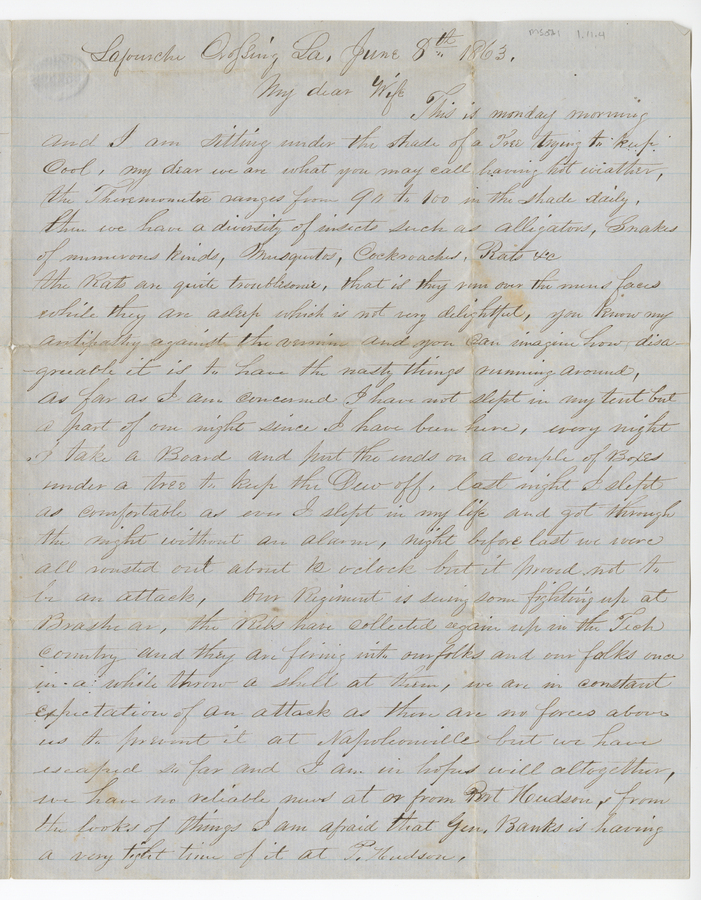 MSS AS 1.11.4
Lafourche Crossing La, June 8th 1863.
My dear Wife
This is monday morning
and I am sitting under the shade of a Tree trying to keep
Cool, my dear we are what you may call having hot weather,
the Thermometre ranges from 90 to 100 in the shade daily,
then we have a diversity of insects such as alligators, Snakes
of numerous kinds, Musquitos, Cockroaches, Rats &c
the Rats are quite troublesome, that is they run over the mens faces
while they are asleep which is not very delightful, you know my
antipathy against the vermin and you can imagine how disa-
greable it is to have the nasty things running around,
as far as I am concerned I have not slept in my tent but
a part of one night since I have been here, every night
I take a Board and put the ends on a couple of Boxes
under a tree to keep the Dew off, last night I slept
as comfortable as ever I slept in my life and got through
the night without an alarm, night before last we were
all rousted out about 12 oclock but it proved not to
be an attack, Our Regiment is seeing some fighting up at
Brashear, the Rebs have collected again up in the Tech
Country and they are firing into our folks and our folks once
in a while throw a shell at them, we are in constant
expectation of an attack as there are no forces above
us to prevent it at Napoleonville but we have
escaped so far and I am in hopes will altogether,
we have no reliable news at or from Port Hudson, from
the looks of things I am afraid that Gen. Banks is having
a very tight time of it at P. Hudson,